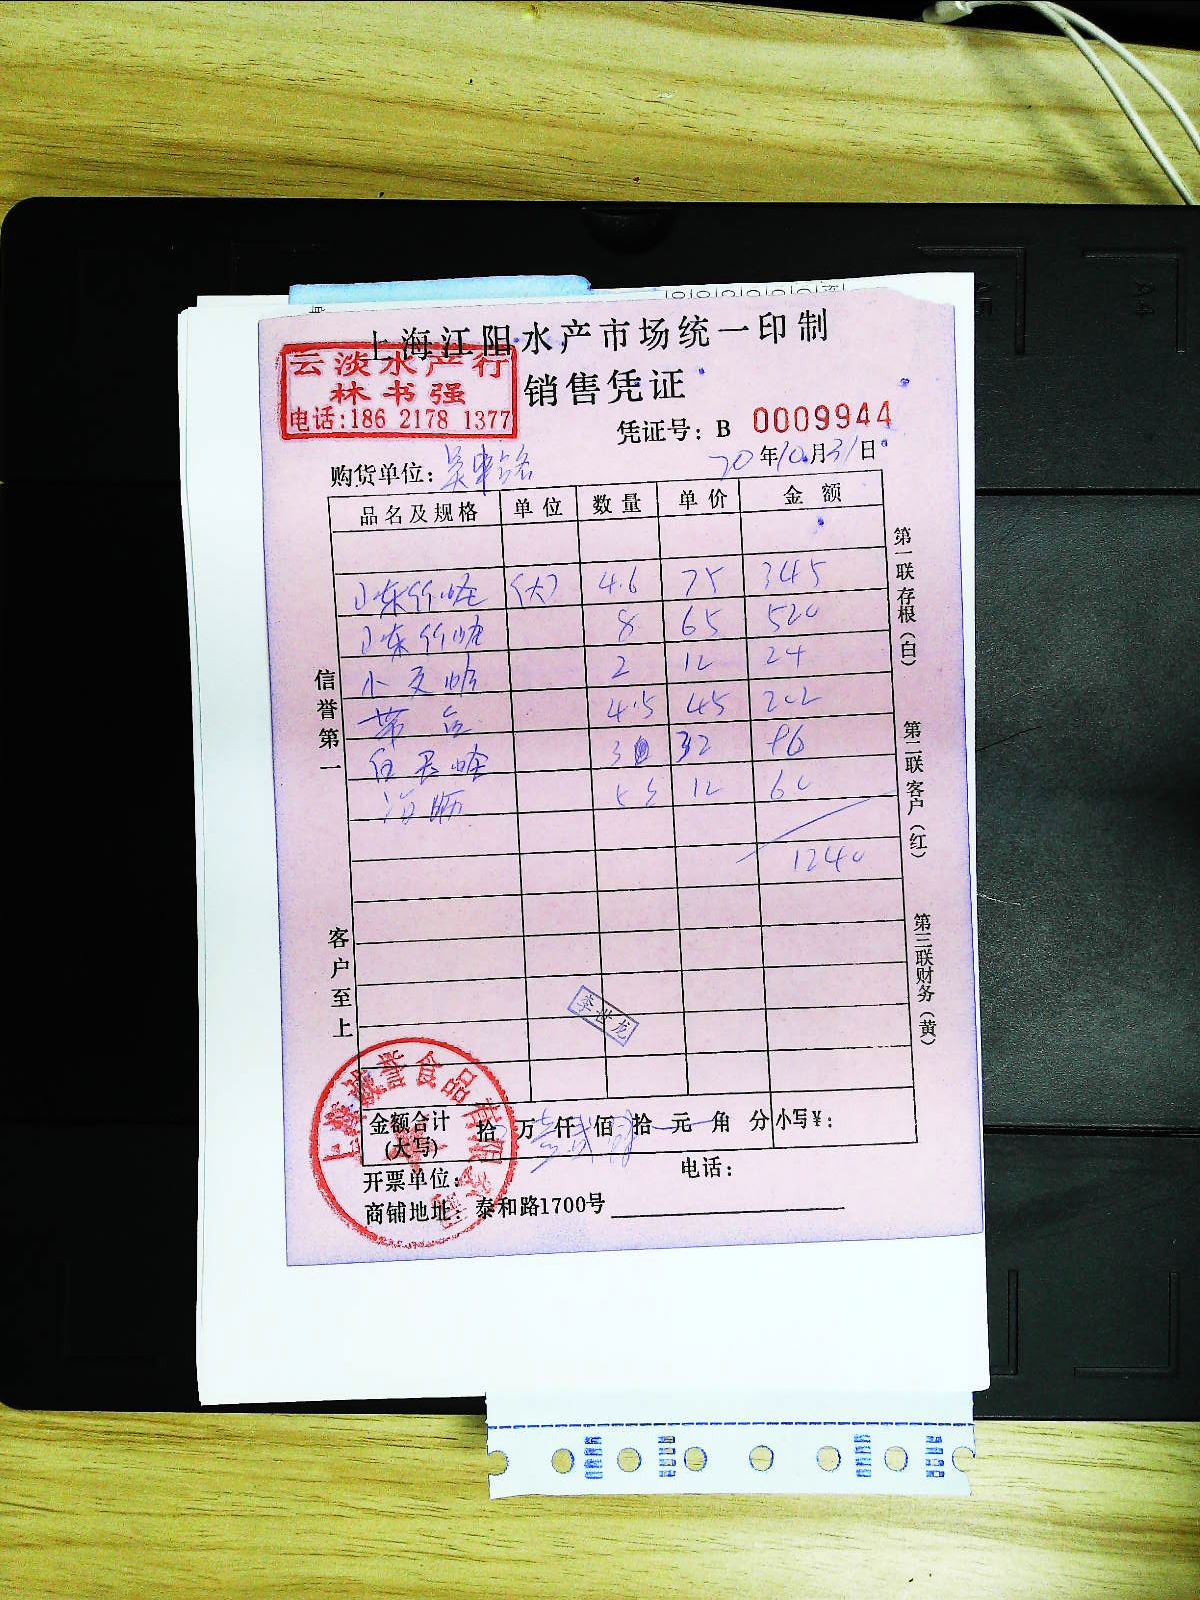 上海江阳水产市场统一印制
云淡水产行
林书强
电话:186 2178 1377
销售凭证
凭证号: B 0009944
购货单位:
20年10月31日
品名及规格 单位 数量 单价 金额
山东竹蛏 (大) 4.6 75 345
山东竹蛏 8 65 520
小 2 12 24
带鱼 4.5 45 202
白 蛤 3 32 96
海 5 12 60
1240
信誉第一
客户至上
第一联存根(白)
第二联客户(红)
第三联财务(黄)
李世龙
上海诚誉食品有限公司
金额合计(大写) 拾 万 仟 佰 拾 元 角 分 小写¥:
开票单位: 电话:
商铺地址: 泰和路1700号
A4